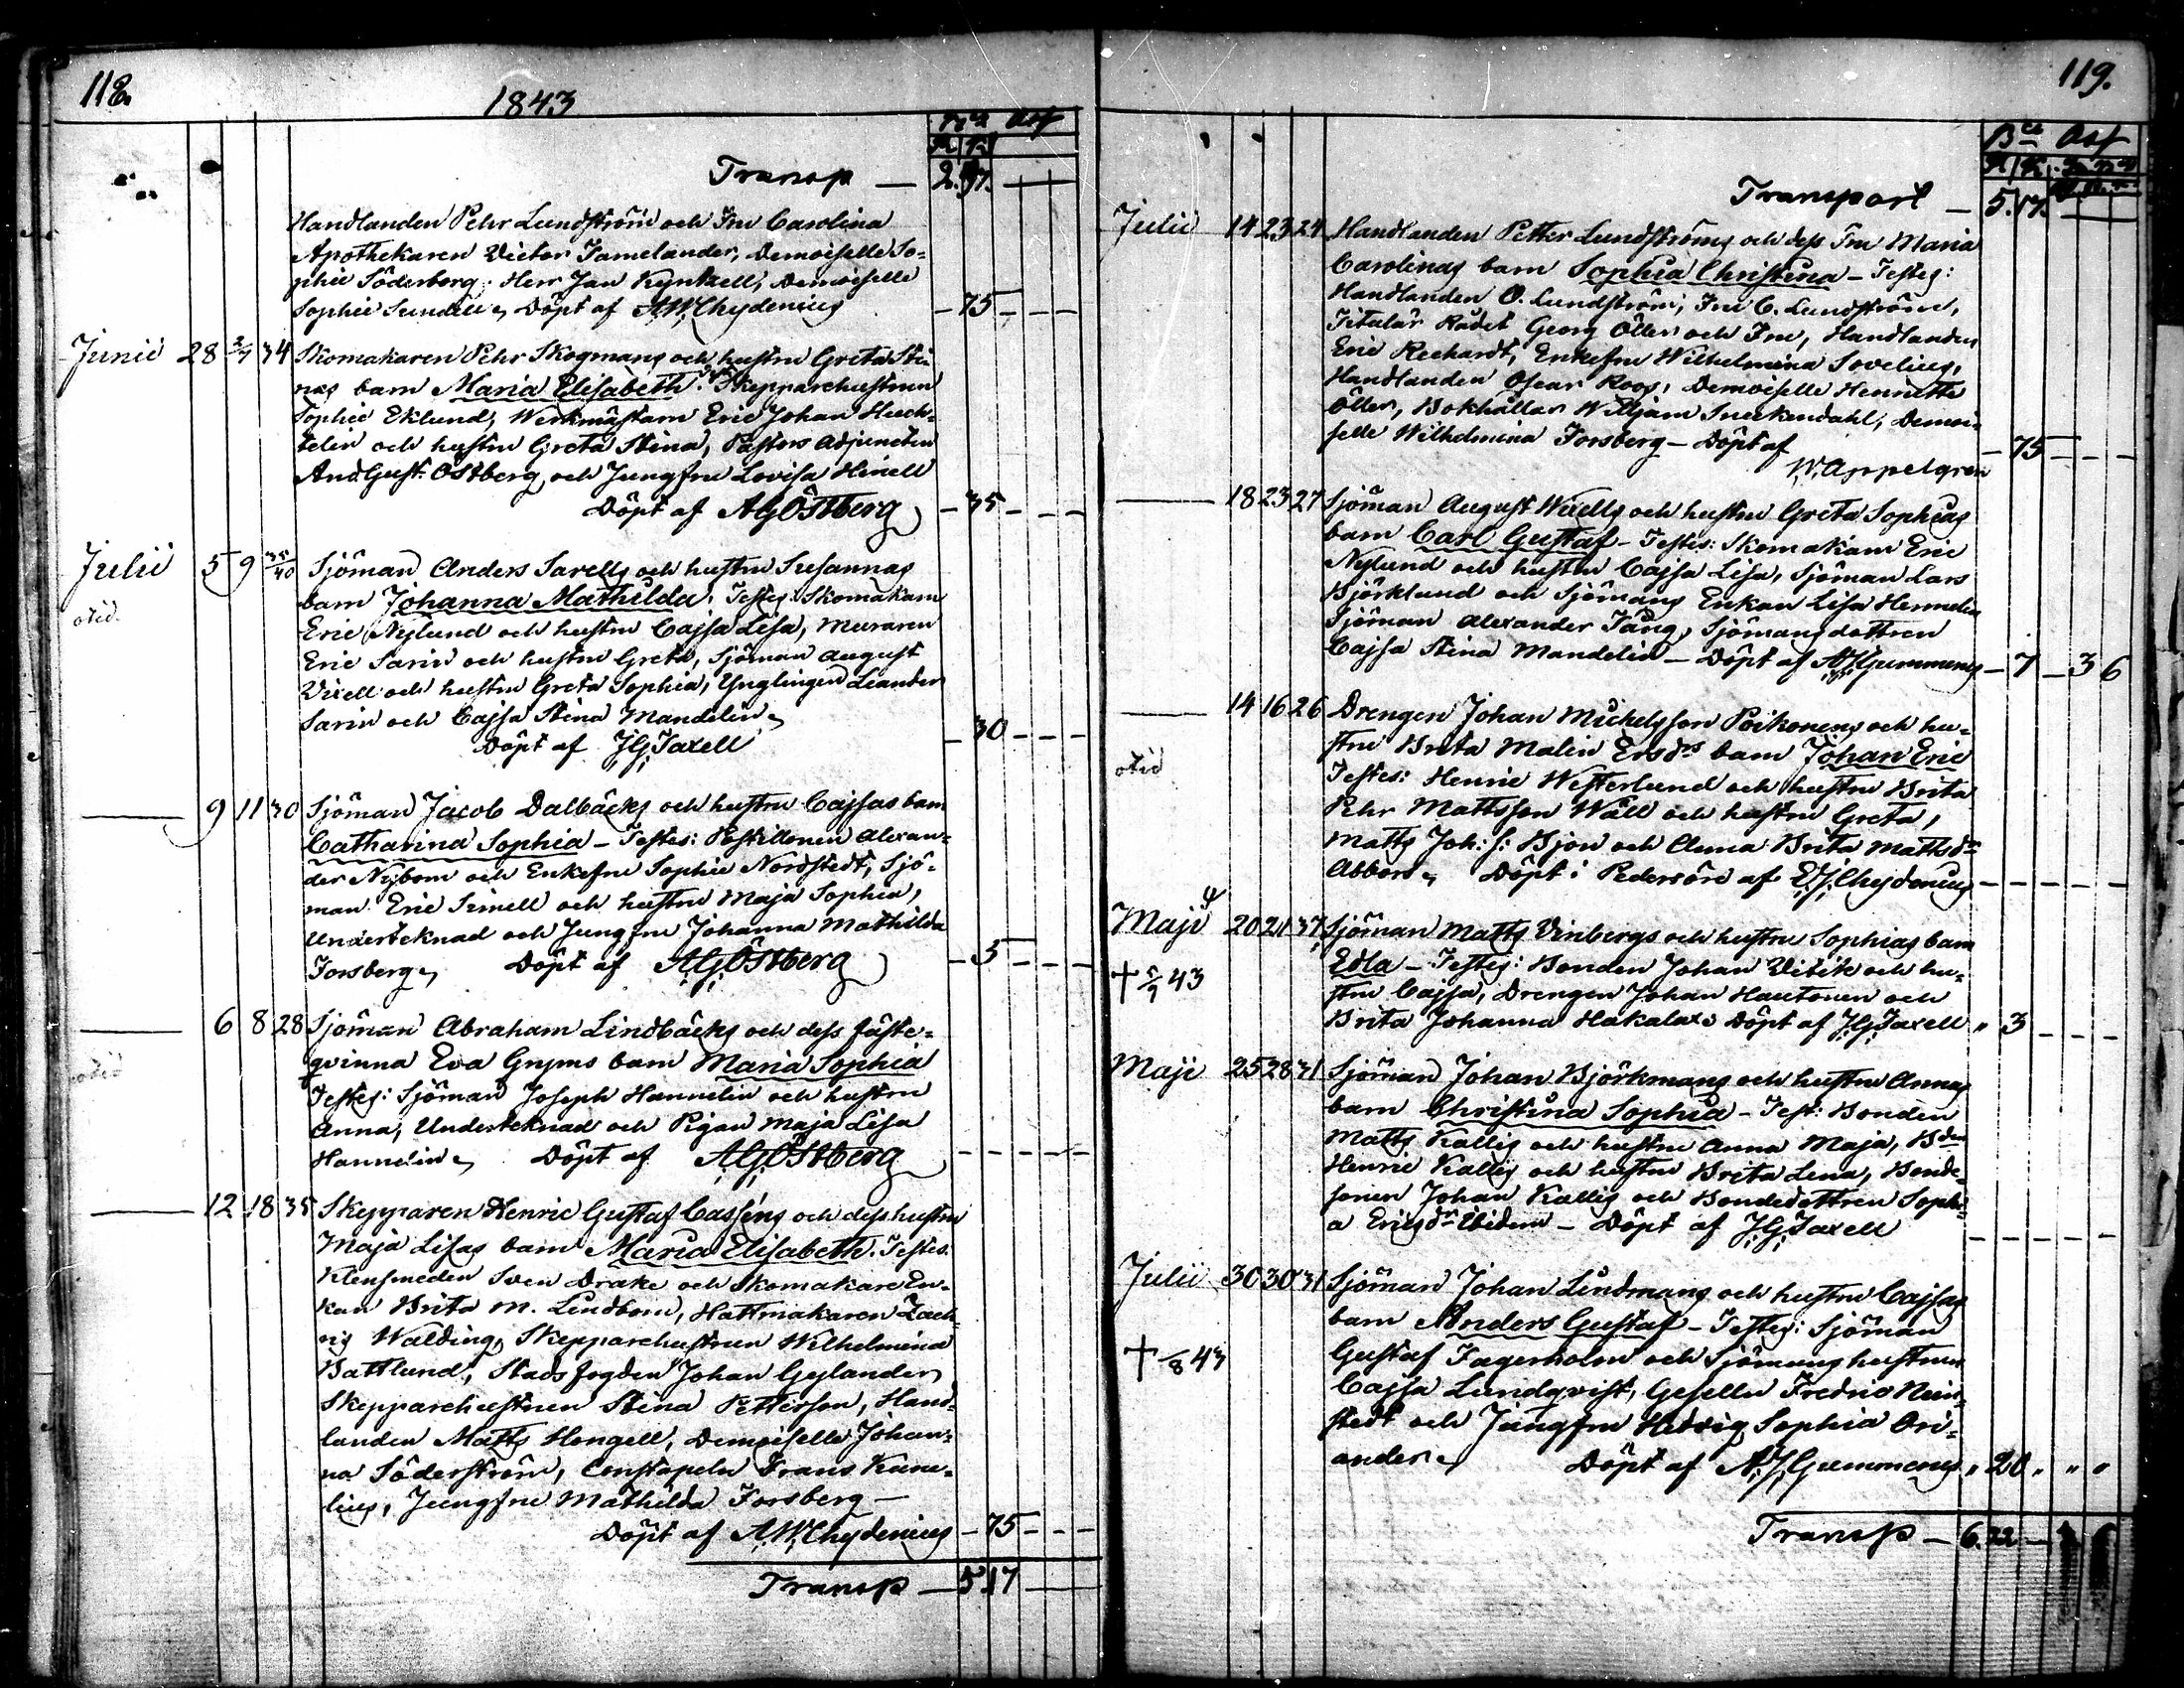 118.
1843
Transp — 2.97.
Handlanden Pehr Lundström och Fru Carolina
Apothekaren Victor Jamelander, Demoiselle So=
phie Söderberg, Herr Jan Kyntzell, Demoiselle
Sophie Sundell, Döpt af A.W. Chydenius — 75 — — —
Junii 28 2/7 34 Skomakaren Pehr Skogmans och hustru Greta Sti=
nas barn Maria Elisabeth. Skepparehustrun
Sophie Eklund, Werkmästarn Eric Johan Huch=
telin och hustru Greta Stina, Pastors Adjuncten
And. Gust. Östberg och Jungfru Lovisa Hinell
Döpt af AG Östberg — 35 — — —
Julii 5 9 35/40 Sjöman Anders Sarells och hustru Susannas
barn Johanna Mathilda. Testes: Skomakarn
otid.
Eric Nylund och hustru Cajsa Lisa, Muraren
Eric Sarin och hustru Greta, Sjöman August
Wixell och hustru Greta Sophia, Ynglingen Leander
Sarin och Cajsa Stina Mandelin
Döpt af J.G. Taxell — 30 — — —
— 9 11 30 Sjöman Jacob Dalbäcks och hustru Cajsas barn
Catharina Sophia — Testes: Postillonen Alexan=
der Nybom och Enkefru Sophie Nordstedt, Sjö=
man Eric Simell och hustru Maja Sophia,
Undertecknad och Jungfru Johanna Mathilda
Forsberg, Döpt af A.G. Östberg — 5 — — —
— 6 8 28 Sjöman Abraham Lindbäcks och dess fäste=
qvinna Eva Gryms barn Maria Sophia
otid
Testes: Sjöman Joseph Hannelin och hustru
Anna, Undertecknad och Pigan Maja Lisa
Hannelin, Döpt af A.G. Östberg — — — — —
— 12 18 35 Skepparen Henric Gustaf Casséns och dess hustru
Maja Lisas barn Maria Elisabeth. Testes:
Klensmeden Sven Drake och Skomakare En=
kan Brita M. Lindbom, Hattmakaren Zach=
ris Walding, Skepparehustrun Wilhelmina
Battlund, Stads fogden Johan Gylander,
Skepparehustrun Stina Petterson, Hand=
landen Matts Hongell, Demoiselle Johan=
na Söderström, Constapeln Frans Kune=
lius, Jungfru Mathilda Forsberg —
Döpt af A.W. Chydenius — 75 — — —
Transp — 5.17
119.
Transport — 5.17.
Julii 14 23 24 Handlanden Petter Lundströms och dess Fru Maria
Carolinas barn Sophia Christina — Testes:
Handlanden O. Lundström, Fru C. Lundström,
Titulär Rådet Georg Öller och Fru, Handlanden
Eric Reichardt, Enkefru Wilhelmina Sovelius,
Handlanden Oscar Roos, Demoiselle Henriette
Öller, Bokhållar William Sneckendahl, Demoi=
selle Wilhelmina Forsberg — Döpt af — 75 — — —
W. Appelgren
— 18 23 27 Sjöman August Wixells och hustru Greta Sophias
barn Carl Gustaf — Testes: Skomakarn Eric
Nylund och hustru Cajsa Lisa, Sjöman Lars
Björklund och Sjömans Enkan Lisa Hermelin
Sjöman Alexander Täng, Sjömansdottren
Cajsa Stina Mandelin — Döpt af A.J. Gummerus — 7 — 3 6
— 14 16 26 Drengen Johan Michelsson Poikonens och hu=
stru Brita Malin Ersdrs barn Johan Eric
otid
Testes: Henric Westerlund och hustru Brita
Pehr Mattsson Wäll och hustru Greta,
Matts Joh: s: Bjon och Anna Brita Mattsdr
Abbors, Döpt i Pedersöre af E.J. Chydenius — — — — —
Maji 20 21 37 Sjöman Matts Vinbergs och hustru Sophias barn
Edla — Testes: Bonden Johan Witik och hu=
† 5/7 43
stru Cajsa, Drengen Johan Hautonen och
Brita Johanna Hakalax. Döpt af J.G. Taxell " 3 — — —
Maji 25 28 31 Sjöman Johan Björkmans och hustru Annas
barn Christina Sophia — Test: Bonden
Matts Kallis och hustru Anna Maja, Bden
Henric Kallis och hustru Brita Lena, Bonde=
sonen Johan Kallis och Bondedottren Sophi=
a Ericsdr Ibidem — Döpt af J.G. Taxell — — — — —
Julii 30 30 31 Sjöman Johan Lindmans och hustru Cajsas
barn Anders Gustaf — Testes: Sjöman
† /8 43
Gustaf Fagerholm och Sjömans hustrun
Cajsa Lundqvist, Gesellen Fredric Nun=
stedt och Jungfru Hedvig Sophia Ori=
ander, Döpt af A.J. Gummerus " 20 " " "
Transp — 6.22 —